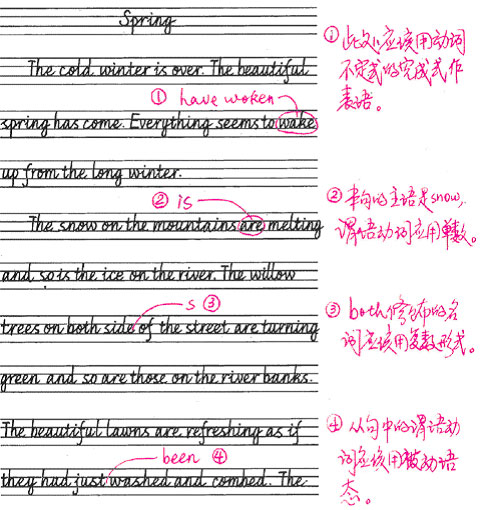 Spring
The cold winter is over. The beautiful
① have woken
spring has come. Everything seems to wake
up from the long winter.
② is
The snow on the mountains are melting
and so is the ice on the river. The willow
s ③
trees on both side of the street are turning
green and so are those on the river banks.
The beautiful lawns are refreshing as if
been ④
they had just washed and combed. The
① 此处应该用动词
不定式的完成式作
表语。
② 本句的主语是snow,
谓语动词应用单数。
③ both修饰的名
词应该用复数形式。
④ 从句中的谓语动
词应该用被动语
态。